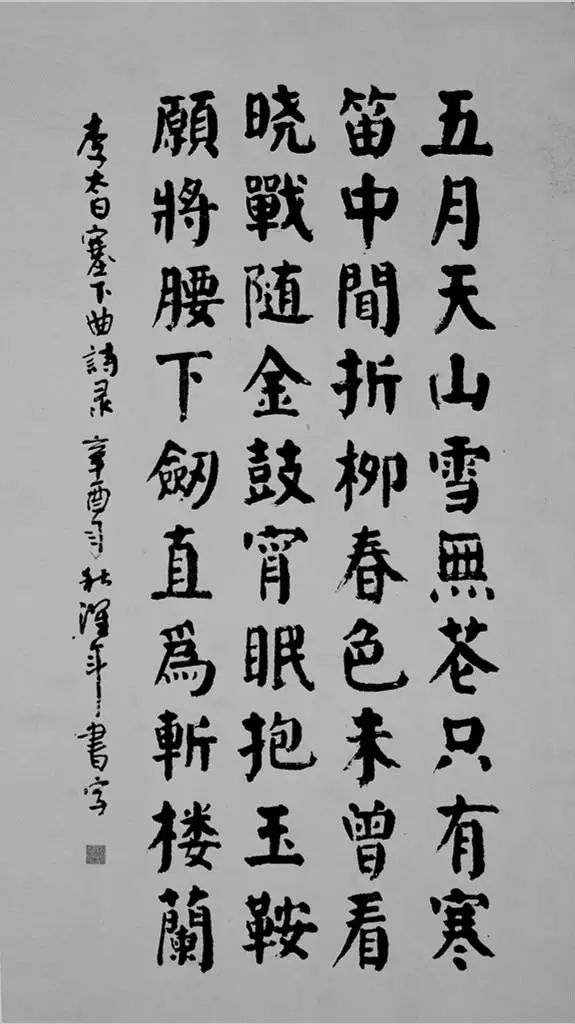 五月天山雪無花只有寒
笛中聞折柳春色未曾看
晓戰随金鼓宵眠抱玉鞍
願將腰下劒直爲斬楼蘭
李太白塞下曲詩录 辛酉秋年書写